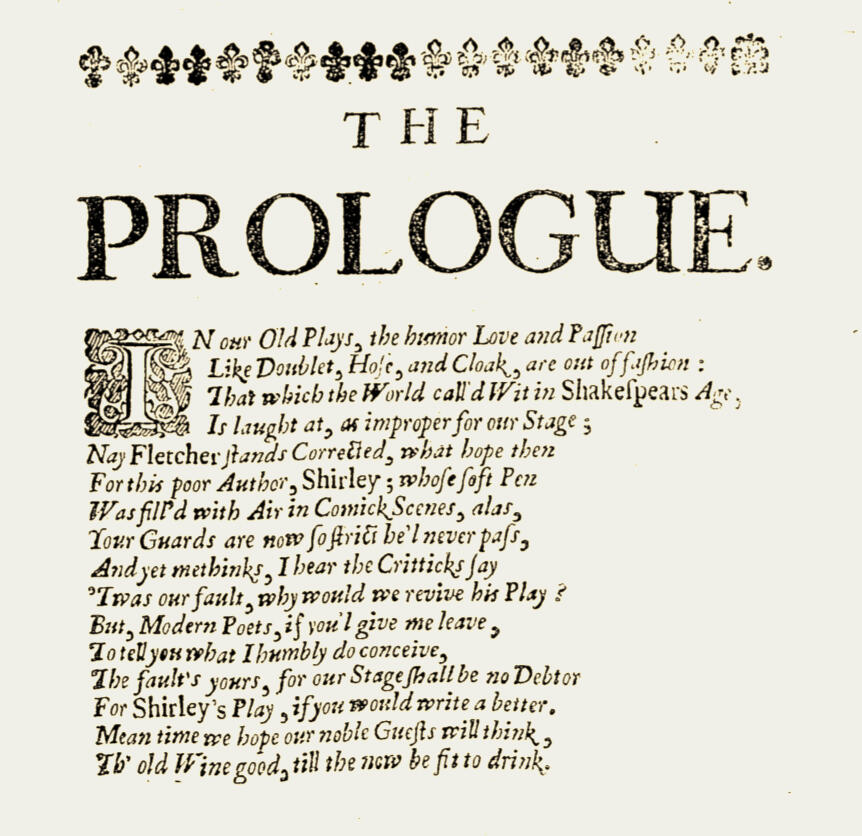 THE
PROLOGUE.
IN our Old Plays, the humor Love and Paſſion
Like Doublet, Hoſe, and Cloak, are out of faſhion :
That which the World call'd Wit in Shakeſpears Age,
Is laught at, as improper for our Stage ;
Nay Fletcher ſtands Corrected, what hope then
For this poor Author, Shirley ; whoſe ſoft Pen
Was fill'd with Air in Comick Scenes, alas,
Your Guards are now ſo ſtrict he'l never paſs,
And yet methinks, I hear the Critticks ſay
'Twas our fault, why would we revive his Play ?
But, Modern Poets, if you'l give me leave,
To tell you what I humbly do conceive,
The fault's yours, for our Stage ſhall be no Debtor
For Shirley's Play , if you would write a better.
Mean time we hope our noble Gueſts will think,
Th' old Wine good, till the now be fit to drink.